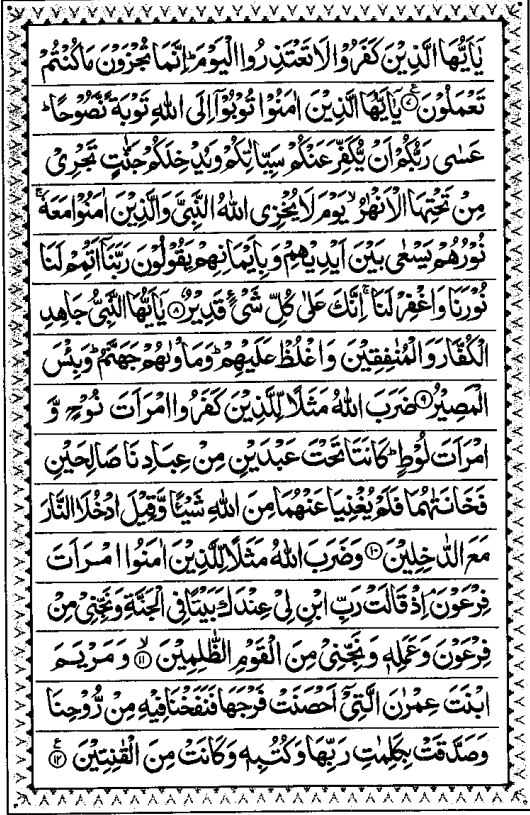 يٰۤاَيُّهَا الَّذِيْنَ كَفَرُوْا لَا تَعْتَذِرُوا الْيَوْمَ ؕ اِنَّمَا تُجْزَوْنَ مَا كُنْتُمْ
تَعْمَلُوْنَ ۷ يٰۤاَيُّهَا الَّذِيْنَ اٰمَنُوْا تُوْبُوْۤا اِلَى اللّٰهِ تَوْبَةً نَّصُوْحًا ؕ
عَسٰى رَبُّكُمْ اَنْ يُّكَفِّرَ عَنْكُمْ سَيِّاٰتِكُمْ وَيُدْخِلَكُمْ جَنّٰتٍ تَجْرِيْ
مِنْ تَحْتِهَا الْاَنْهٰرُ ۙ يَوْمَ لَا يُخْزِى اللّٰهُ النَّبِيَّ وَالَّذِيْنَ اٰمَنُوْا مَعَهٗ ۚ
نُوْرُهُمْ يَسْعٰى بَيْنَ اَيْدِيْهِمْ وَبِاَيْمَانِهِمْ يَقُوْلُوْنَ رَبَّنَاۤ اَتْمِمْ لَنَا
نُوْرَنَا وَاغْفِرْ لَنَا ۚ اِنَّكَ عَلٰى كُلِّ شَيْءٍ قَدِيْرٌ ۸ يٰۤاَيُّهَا النَّبِيُّ جَاهِدِ
الْكُفَّارَ وَالْمُنٰفِقِيْنَ وَاغْلُظْ عَلَيْهِمْ ؕ وَمَاْوٰىهُمْ جَهَنَّمُ ؕ وَبِئْسَ
الْمَصِيْرُ ۹ ضَرَبَ اللّٰهُ مَثَلًا لِّلَّذِيْنَ كَفَرُوا امْرَاَتَ نُوْحٍ وَّ
امْرَاَتَ لُوْطٍ ؕ كَانَتَا تَحْتَ عَبْدَيْنِ مِنْ عِبَادِنَا صَالِحَيْنِ
فَخَانَتٰهُمَا فَلَمْ يُغْنِيَا عَنْهُمَا مِنَ اللّٰهِ شَيْـًٔا وَّقِيْلَ ادْخُلَا النَّارَ
مَعَ الدّٰخِلِيْنَ ۱۰ وَضَرَبَ اللّٰهُ مَثَلًا لِّلَّذِيْنَ اٰمَنُوا امْرَاَتَ
فِرْعَوْنَ ۘ اِذْ قَالَتْ رَبِّ ابْنِ لِيْ عِنْدَكَ بَيْتًا فِى الْجَنَّةِ وَنَجِّنِيْ مِنْ
فِرْعَوْنَ وَعَمَلِهٖ وَنَجِّنِيْ مِنَ الْقَوْمِ الظّٰلِمِيْنَ ۱۱ ۙ وَمَرْيَمَ
ابْنَتَ عِمْرٰنَ الَّتِيْۤ اَحْصَنَتْ فَرْجَهَا فَنَفَخْنَا فِيْهِ مِنْ رُّوْحِنَا
وَصَدَّقَتْ بِكَلِمٰتِ رَبِّهَا وَكُتُبِهٖ وَكَانَتْ مِنَ الْقٰنِتِيْنَ ۱۲ ع